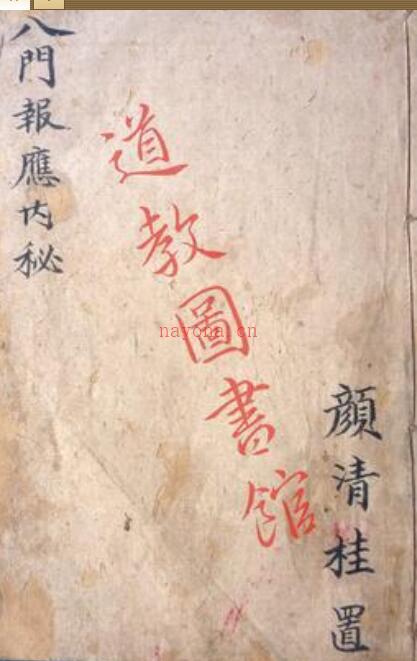 八門報應内秘
道教圖書館
nayona.cn
顔清桂置